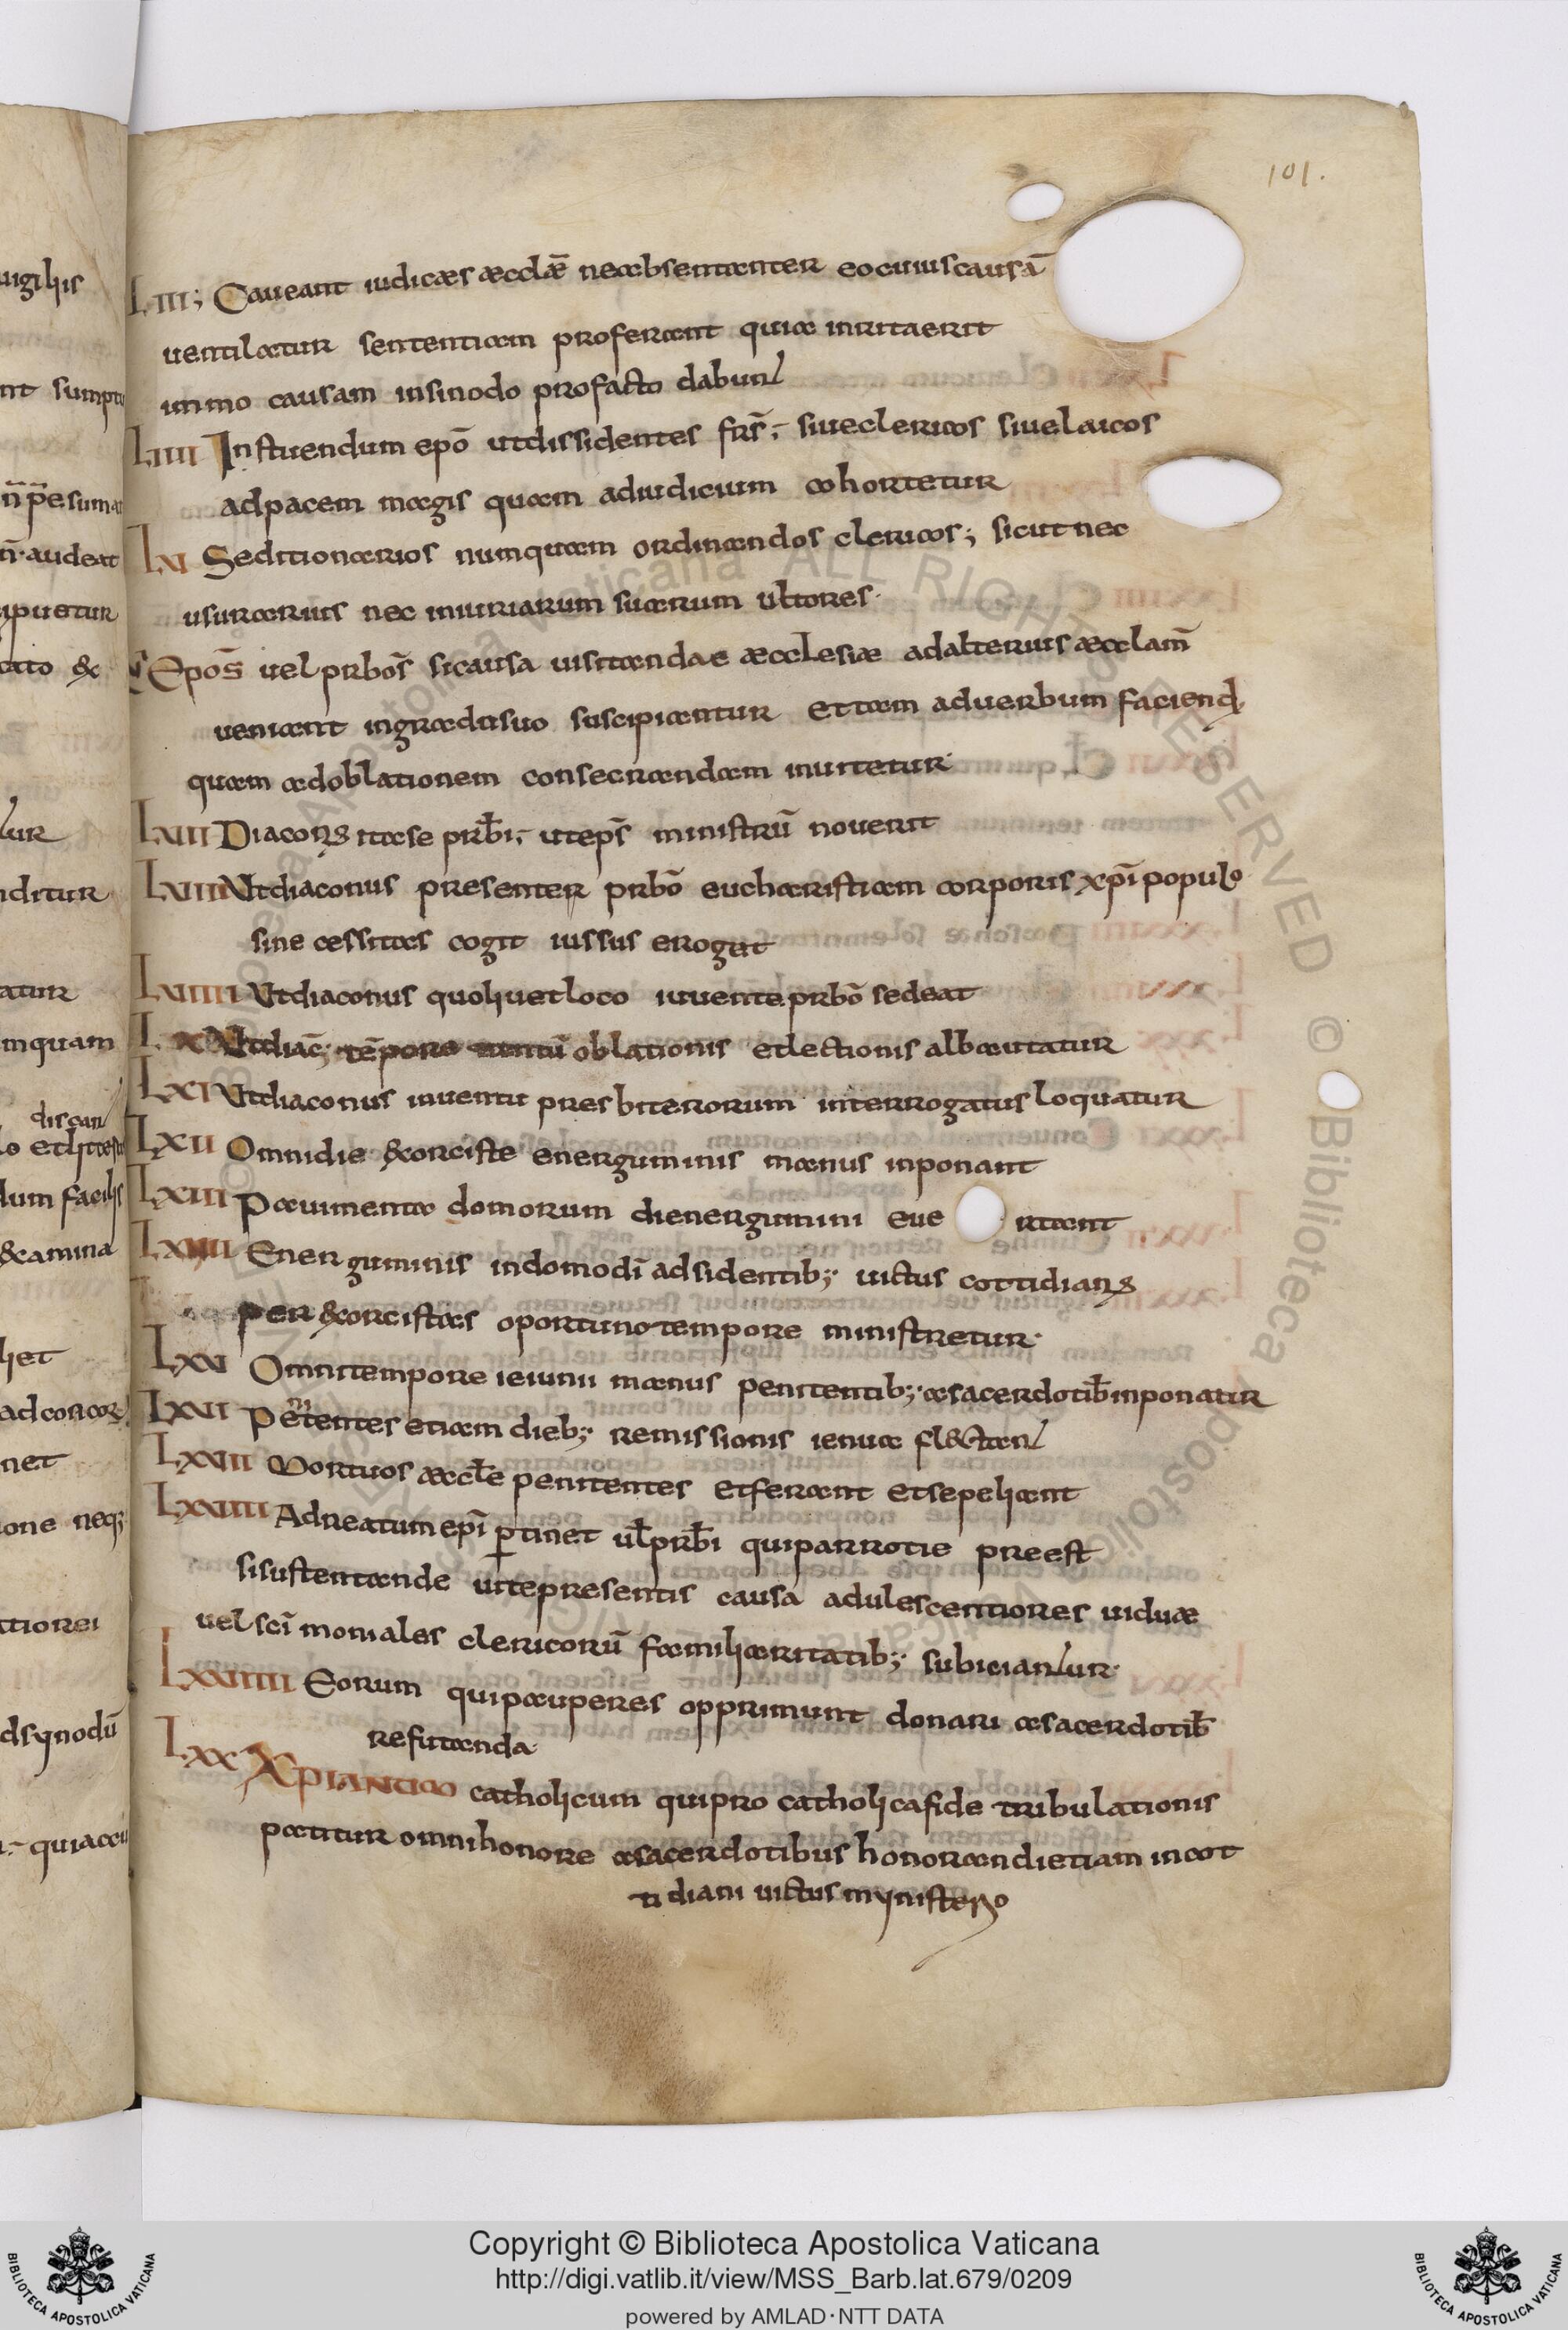 101.
LIII; Caveant iudicaes aecclae̅ neabsentanter eocuiuscausa̅
uentilatur sententiam proferant quia inritaerit
immo causam insinodo profacto dabunt
LIIII Instuendum epo̅ utdissidentes frs̅; siueclericos siuelaicos
adpacem magis quam adiudicium cohortetur
LXI Seditionarios numquam ordinandos clericos; sicut nec
usurarius nec iniuriarum suarum ultores·
Epos̅ uel prbos̅ sicausa uisitandae aecclesiae adalterius aecclam̅
ueniant ingradusuo suscipiantur ettam aduerbum faciend
quam adoblationem consecrandam inuitetur·
LXIII Diacons itase prb̅i; uteps̅ ministru̅ nouerit
LXIIII Utdiaconus presenter prbo̅ eucharistiam corporis xp̅i populo
sine cessitas cogit iussus erogat
LXIIII Utdiaconus quolivetloco iuuente prbo̅ sedeat
LX Utdiac̅; te̅pore oblationis etlectionis albautatur
LXI Utdiaconus inuentu presbiterorum interrogatus loquatur
LXII Omnidie &orciste energuminis manus inponant
LXIII Pauimenta domorum dienergumini eue rtant
LXIIII Energuminis indomodi̅ adsidentib; uictus cottidians
per &orcistas oportuno tempore ministretur·
LXXI Omnitempore ieiunii manus penitentib; asacerdotib̅ inponatur
LXXII Penitentes etiam dieb; remissionis ienua fl&tant
LXXIII Mortuos aeccle̅ penitentes etferant etsepeliant
LXXIIII Adreatum epi̅ ptinet ul̅ prb̅i quiparrotie preest
sisustentande uitepresentis causa adulescentiores uiduae
uel sci̅ moniales clericoru̅ familiaritatib; subiciantur·
LXXIIIII Eorum quipauperes opprimunt donari asacerdotib̅
refutanda·
LXX Xpiantico catholicum quipro catholicafide tribulationis
patitur omnihonore asacerdotibus honorandietiam incot
ti diani uictus mynistero
Copyright © Biblioteca Apostolica Vaticana
http://digi.vatlib.it/view/MSS_Barb.lat.679/0209
powered by AMLAD·NTT DATA